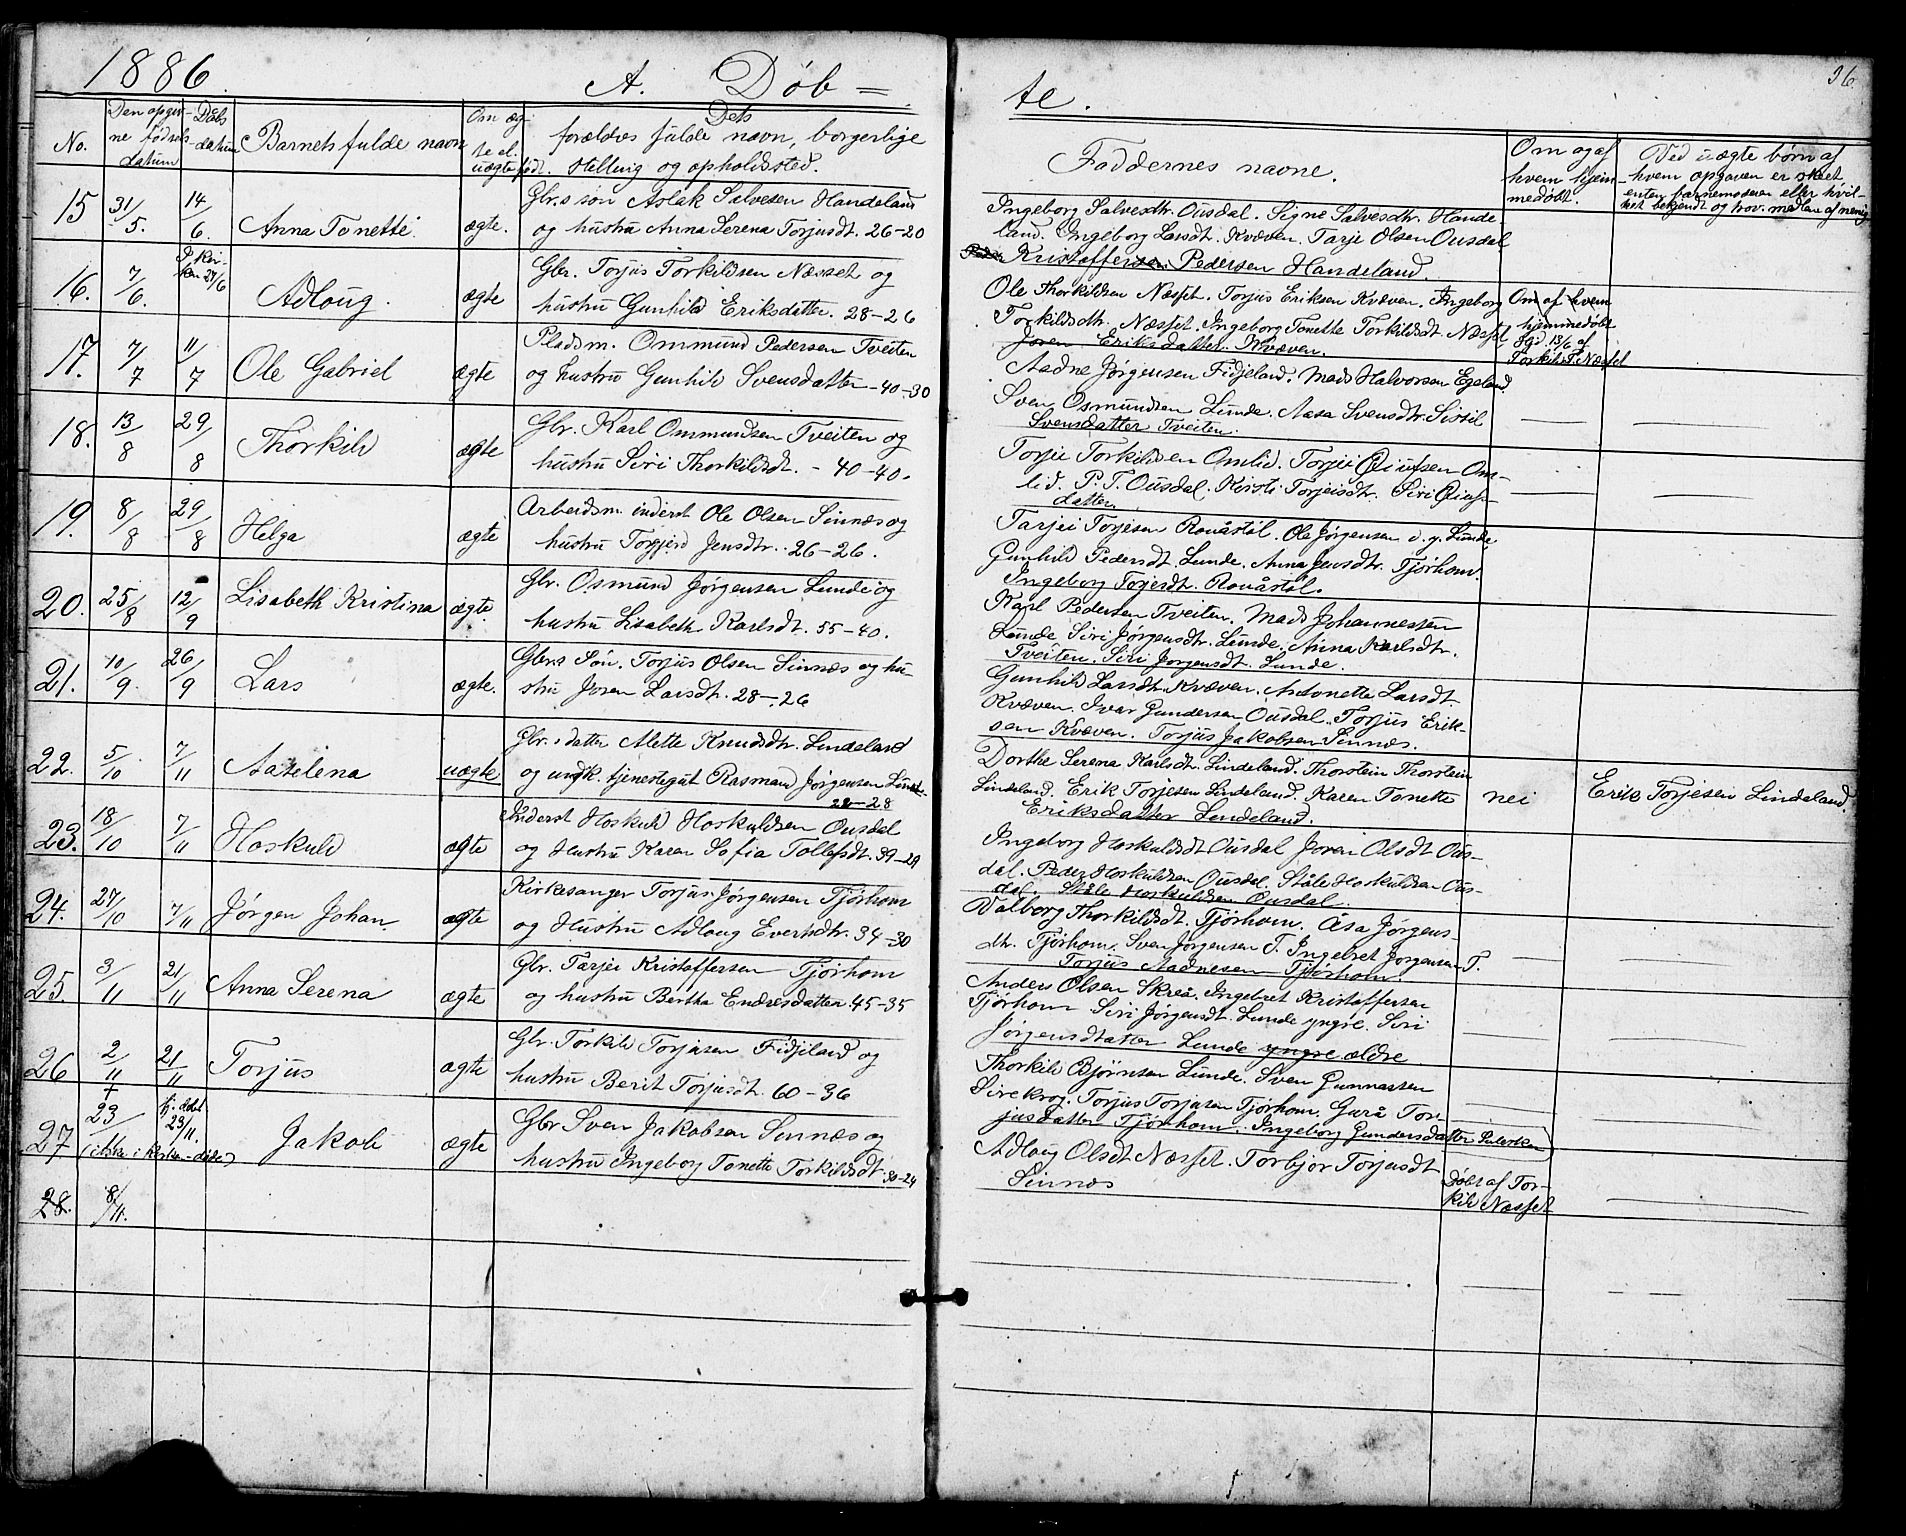 1886. A. Døb =
No.
Den opgiv-
ne fødsels
datum
Dåbs
datum
Barnets fulde navn
Om æg-
te el.
uægte født.
Dets
forældres fulde navn, borgerlige
stilling og opholdssted.
15 31/5. 14/6. Anna Tonette. ægte.
Gbr.s søn Aslak Salvesen Handeland
og hustru Anna Serena Torjusdt. 26-20
16. 7/6. I kir-
ken 27/6 Adloug. ægte
Gbr. Torjus Torkildsen Næsset og
hustru Gunhild Eriksdatter. 28-26
17. 7/7 11/7 Ole Gabriel ægte
Pladsm. Ommund Pedersen Tveiten
og hustru Gunhild Svensdatter - 40-30
18. 13/8 29/8 Thorkild ægte
Gbr. Karl Ommundsen Tveiten og
hustru Siri Thorkildsdt. - 40-40.
19. 8/8 29/8 Helga ægte
Arbeidsm. inderst Ole Olsen Sinnæs og
hustru Torgjerd Jensdtr. 26-26.
20. 25/8 12/9 Lisabeth Kristina ægte.
Gbr. Osmund Jørgensen Lunde og
hustru Lisabeth Karlsdt. 55-40.
21. 10/9 26/9 Lars ægte.
Gbrs Søn. Torjus Olsen Sinnæs og hu-
stru Joren Larsdt. 28-26
22. 5/10 7/11 Aaselena uægte
Gbr.s datter Alette Knudsdtr. Lindeland
og ungk. tjenestegut Rasmund Jørgensen
22-28
23. 18/10 7/11 Hoskuld ægte
Inderst Hoskuld Hoskuldsen Ousdal
og Hustru Karen Sofia Tollefsdt. 39-29
24. 27/10 7/11 Jørgen Johan ægte
Kirkesanger Torjus Jørgensen Tjørhom
og Hustru Adloug Evertsdtr. 34-30
25. 3/11 21/11 Anna Serena ægte
Gbr. Tarjei Kristoffersen Tjørhom
og hustru Bertha Endresdatter. 45-35
26 2/11 21/11 Torjus ægte
Gbr. Torkild Torjusen Fidjeland og
hustru Berit Torjusdt. 60-36
27 23/ hj. døbt
23/11. Jakob ægte
(ikke i kirken - døde)
Gbr Sven Jakobsen Sinnæs og
hustru Ingeborg Tonette Torkildsdt. 30-24
28. 8/11.
te.
36
Faddernes navne.
Om og af
hvem hjem-
medøbt.
Ved uægte børn af
hvem opgaven er skeet
enten barnemoderen eller hvil-
ket bekjendt og trov. medlem af menig.
Ingeborg Salvesdtr. Ousdal. Signe Salvesdtr. Hande-
land. Ingeborg Larsdt. Kvæven. Tarje Olsen Ousdal
Kristoffersen Pedersen Handeland.
Ole Thorkildsen Næsset. Torjus Eriksen Kvæven. Ingeborg
Torkildsdtr. Næsset. Ingeborg Tonette Torkildsdt. Næsset
Joren Eriksdatter. Kvæven.
Om af hvem
hjemmedøbt
13/6 af
Torkild T. Næsset
Aadne Jørgensen Fidjeland. Mads Halvorsen Egeland.
Sven Osmundsen Lunde. Aasa Svensdtr. Sissil
Svensdatter Tveiten.
Torjei Torkildsen Omlid. Torjei Olsen Om-
lid. P. T. Ousdal. Kirsti Torjeisdtr. Siri
datter.
Tarjei Torjesen Rouåstøl. Ole Jørgensen d. y. Lunde
Gunhild Pedersdt. Lunde. Anna Jensdtr. Tjørhom.
Ingeborg Torjesdt. Rouåstøl.
Karl Pedersen Tveiten. Mads Johannessen
Lunde. Siri Jørgensdtr. Lunde. Anna Karlsdtr.
Tveiten. Siri Jørgensdt. Lunde.
Gunhild Larsdt. Kvæven. Antonette Larsdt.
Kvæven. Ivar Gundersen Ousdal. Torjus Erik-
sen Kvæven. Torjus Jakobsen Sinnæs.
Dorthe Serena Karlsdt. Lindeland. Thorstein Thorstein
Lindeland. Erik Torjesen Lindeland. Karen Tonette
Eriksdatter Lindeland.
nei
Erik Torjesen Lindeland.
Ingeborg Hoskuldsdt Ousdal Joren Olsdt Ous-
dal. Peder Hoskuldsen Ousdal. Ståle Hoskuldsen Ous-
dal. Ståle Hoskuldsen Ousdal.
Valborg Thorkildsdt. Tjørhom. Åsa Jørgens-
dtr. Tjørhom. Sven Jørgensen T. Ingebret Jørgensen T.
Torjus Aadnesen Tjørhom.
Anders Olsen Skreå. Ingebret Kristoffersen
Tjørhom Siri Jørgensdt. Lunde yngre. Siri
Jørgensdtatter Lunde yngre ældre
Thorkild Bjørnsen Lunde. Sven Gunnarsen
Sirekrog. Torjus Torjusen Tjørhom. Gurå Tor-
jusdatter Tjørhom. Ingeborg Gundersdatter
Adloug Olsdt Næsset. Torbjør Torjusdt
Sinnæs
Døbt af Tor-
kild Næsset